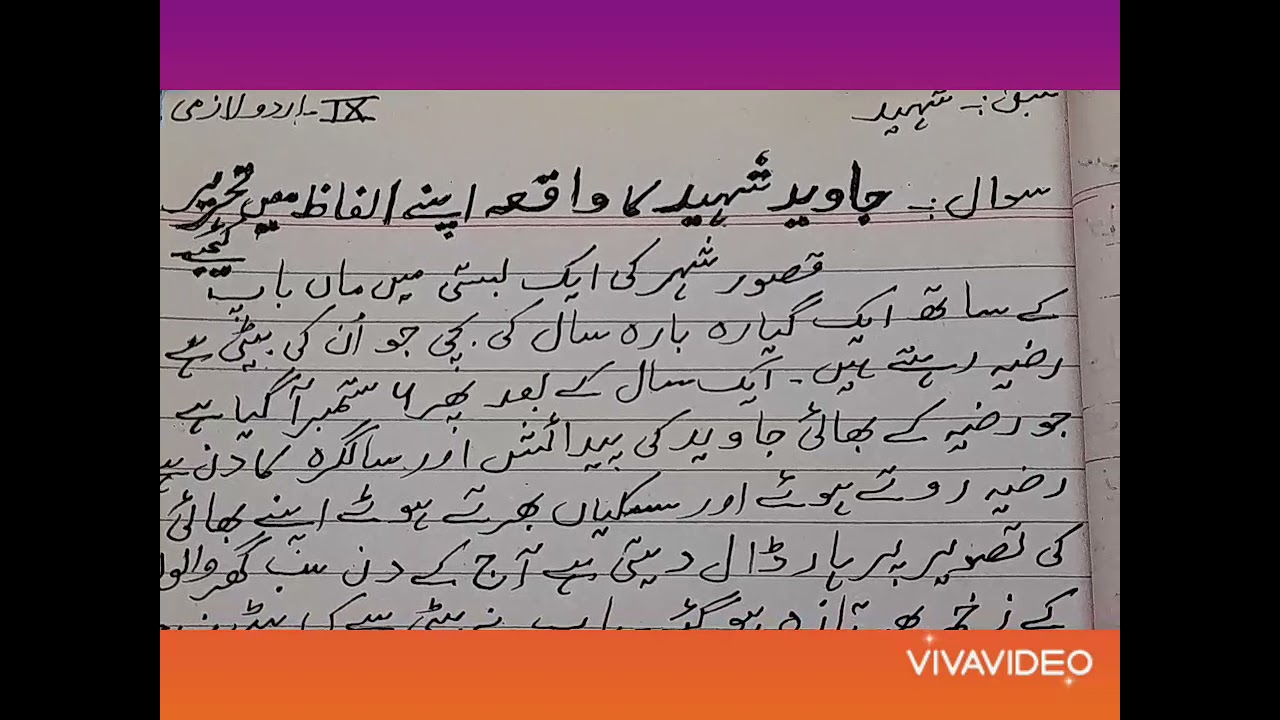 سبق:۔ شہید
IX۔اردو لازمی
سوال:۔ جاوید شہید کا واقعہ اپنے الفاظ میں تحریر
کیجیے
قصور شہر کی ایک بستی میں ماں باپ
کے ساتھ ایک گیارہ بارہ سال کی بچی جو اُن کی بیٹی ہے
رضیہ رہتے ہیں۔ ایک سال کے بعد پھر ۶ ستمبر آگیا ہے
جو رضیہ کے بھائی جاوید کی پیدائش اور سالگرہ کا دن ہے
رضیہ روتے ہوئے اور سسکیاں بھرتے ہوئے اپنے بھائی
کی تصویر پر ہار ڈال دیتی ہے آج کے دن سب گھر والوں
کے زخم پھر تازہ ہوگئے۔ باپ نے بیٹی سے کہا
VIVAVIDEO